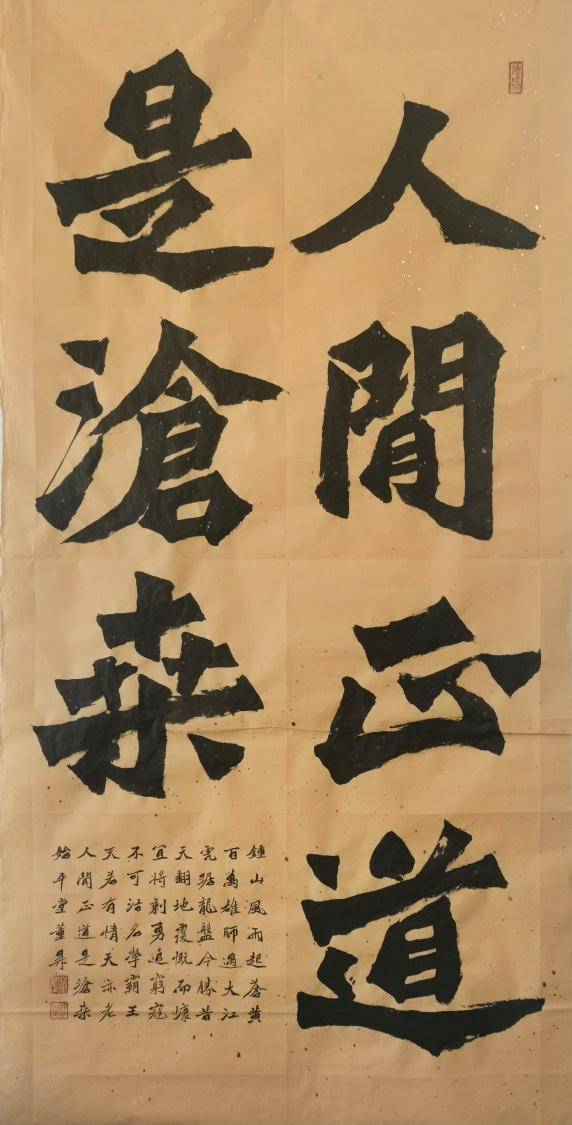 人間正道
是滄桒
鍾山風雨起蒼黄
百萬雄師過大江
虎踞龍盤今勝昔
天翻地覆慨而慷
宜將剩勇追窮寇
不可沽名學霸王
天若有情天亦老
人間正道是滄桒
始平堂董昇